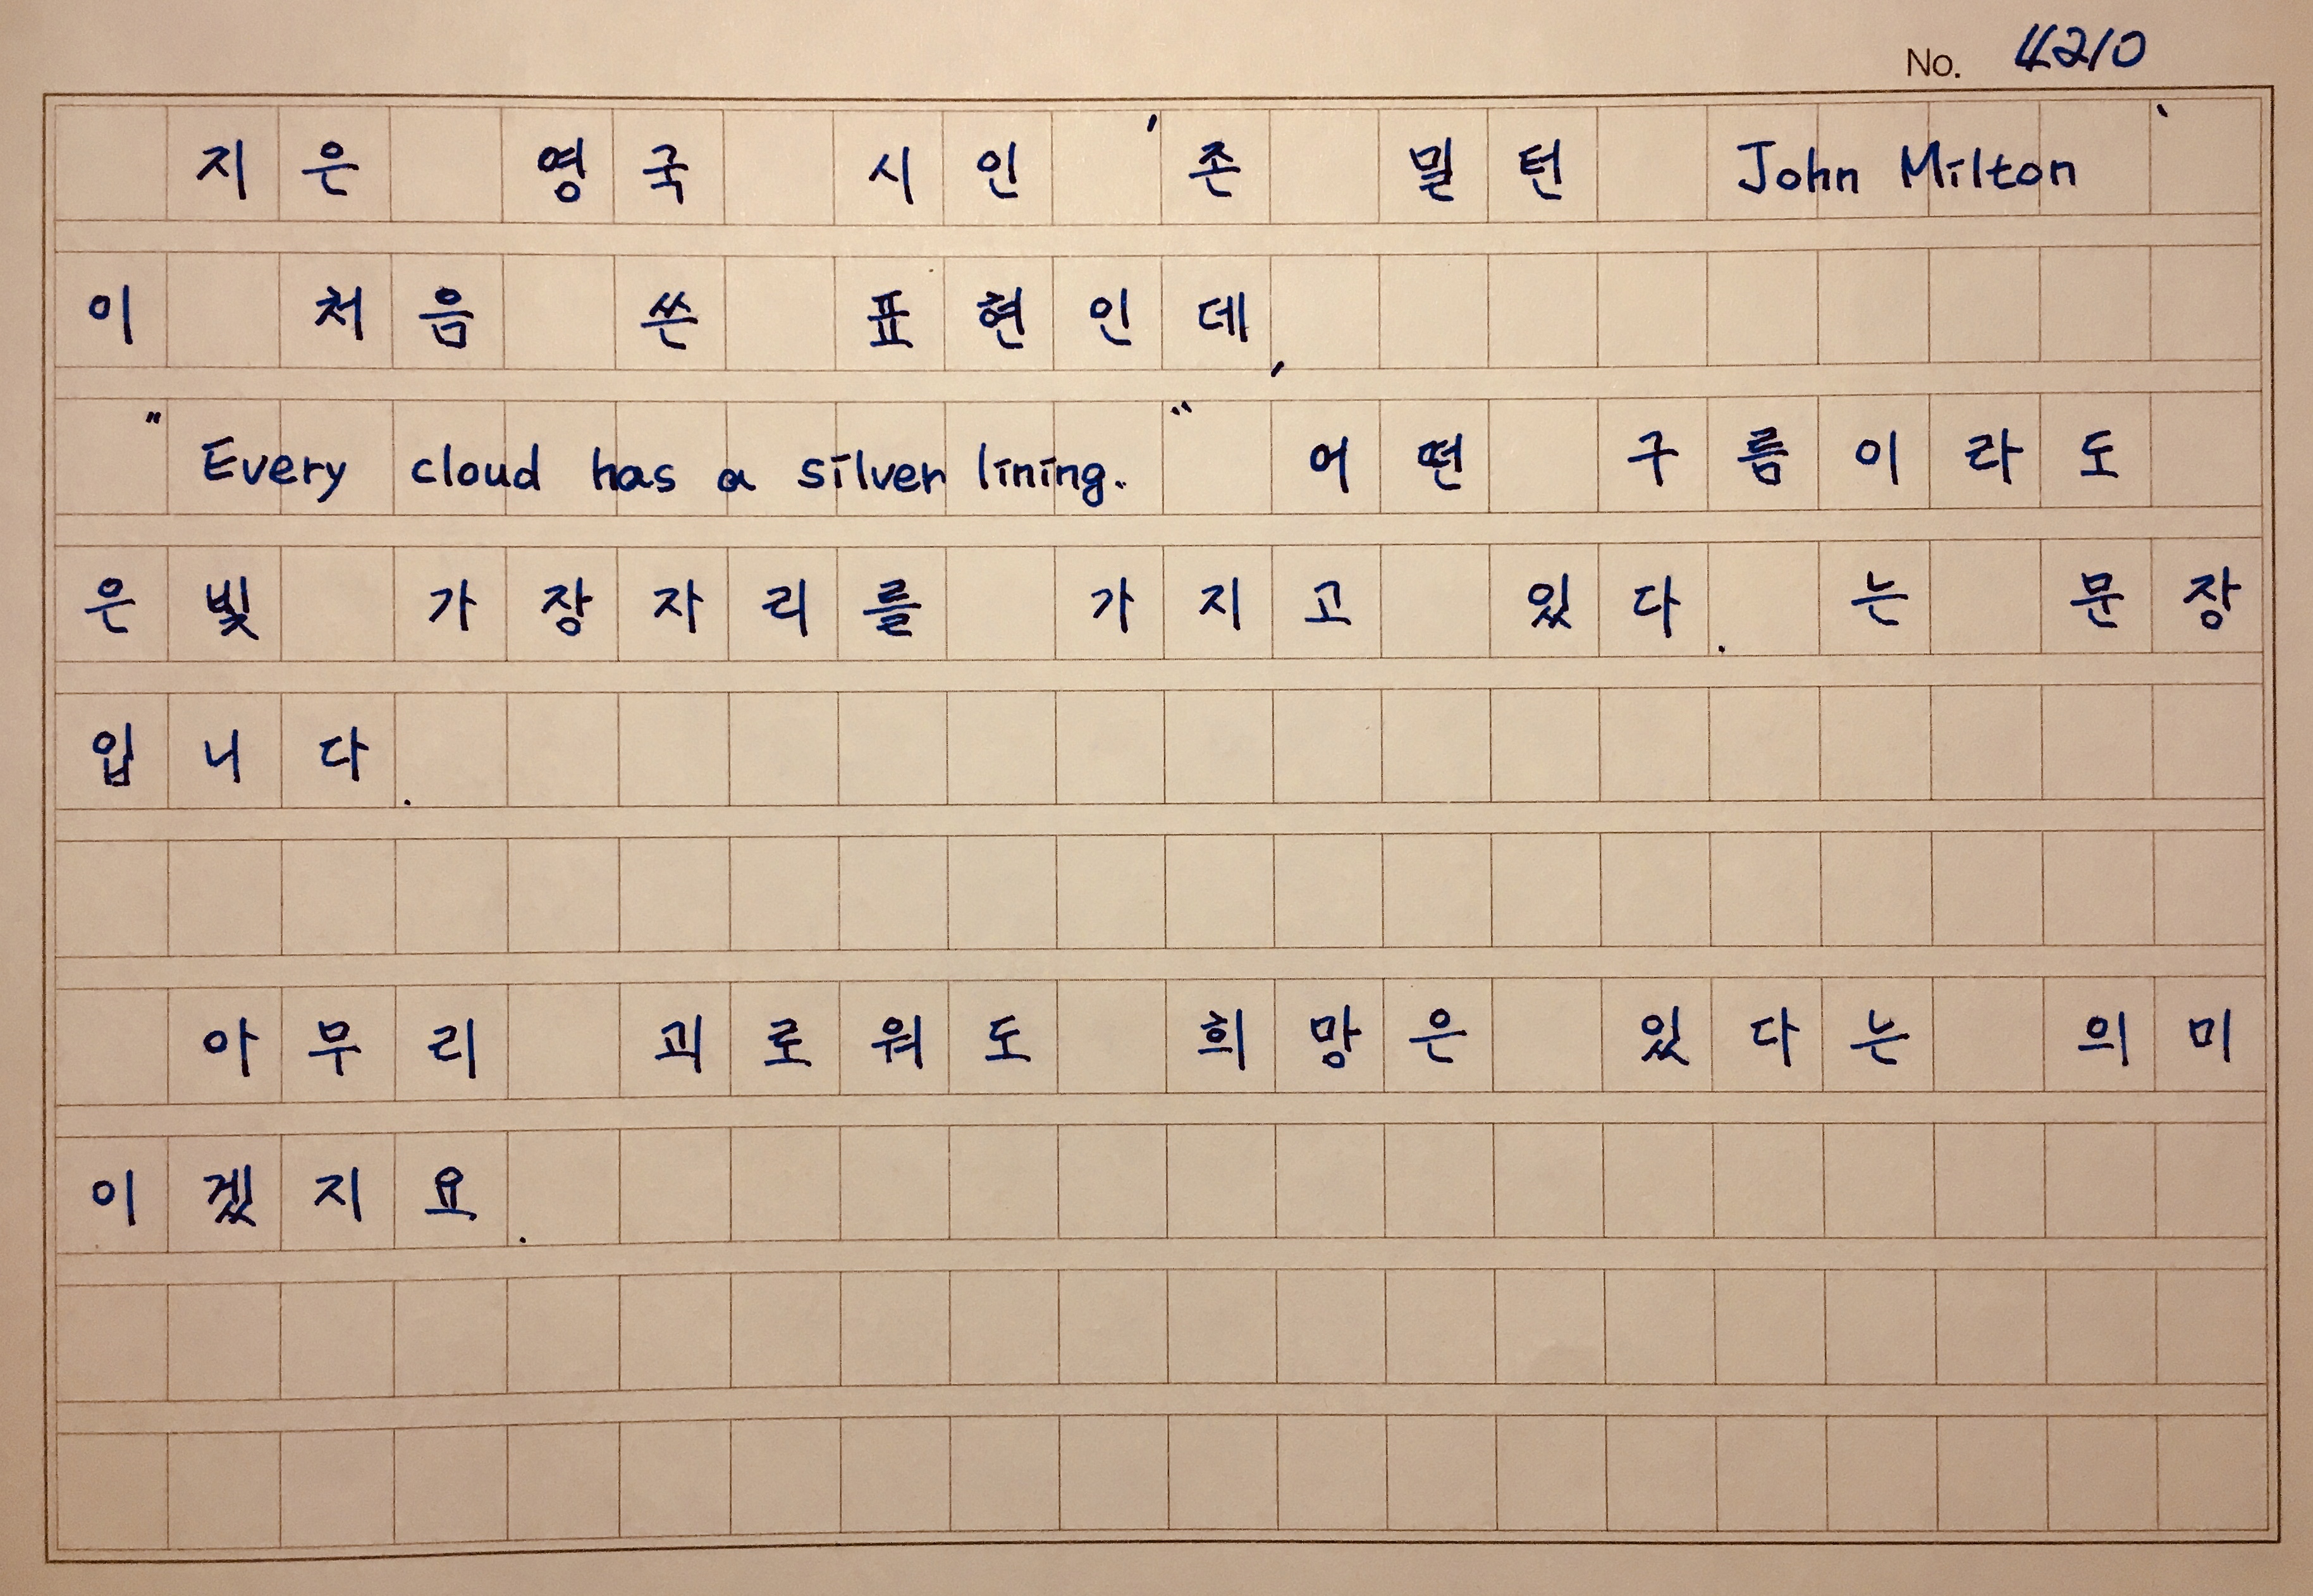 No. 4210
지은 영국 시인 '존 밀턴 John Milton'
이 처음 쓴 표현인데,
"Every cloud has a silver lining." 어떤 구름이라도
은빛 가장자리를 가지고 있다. 는 문장
입니다.
아무리 괴로워도 희망은 있다는 의미
이겠지요.